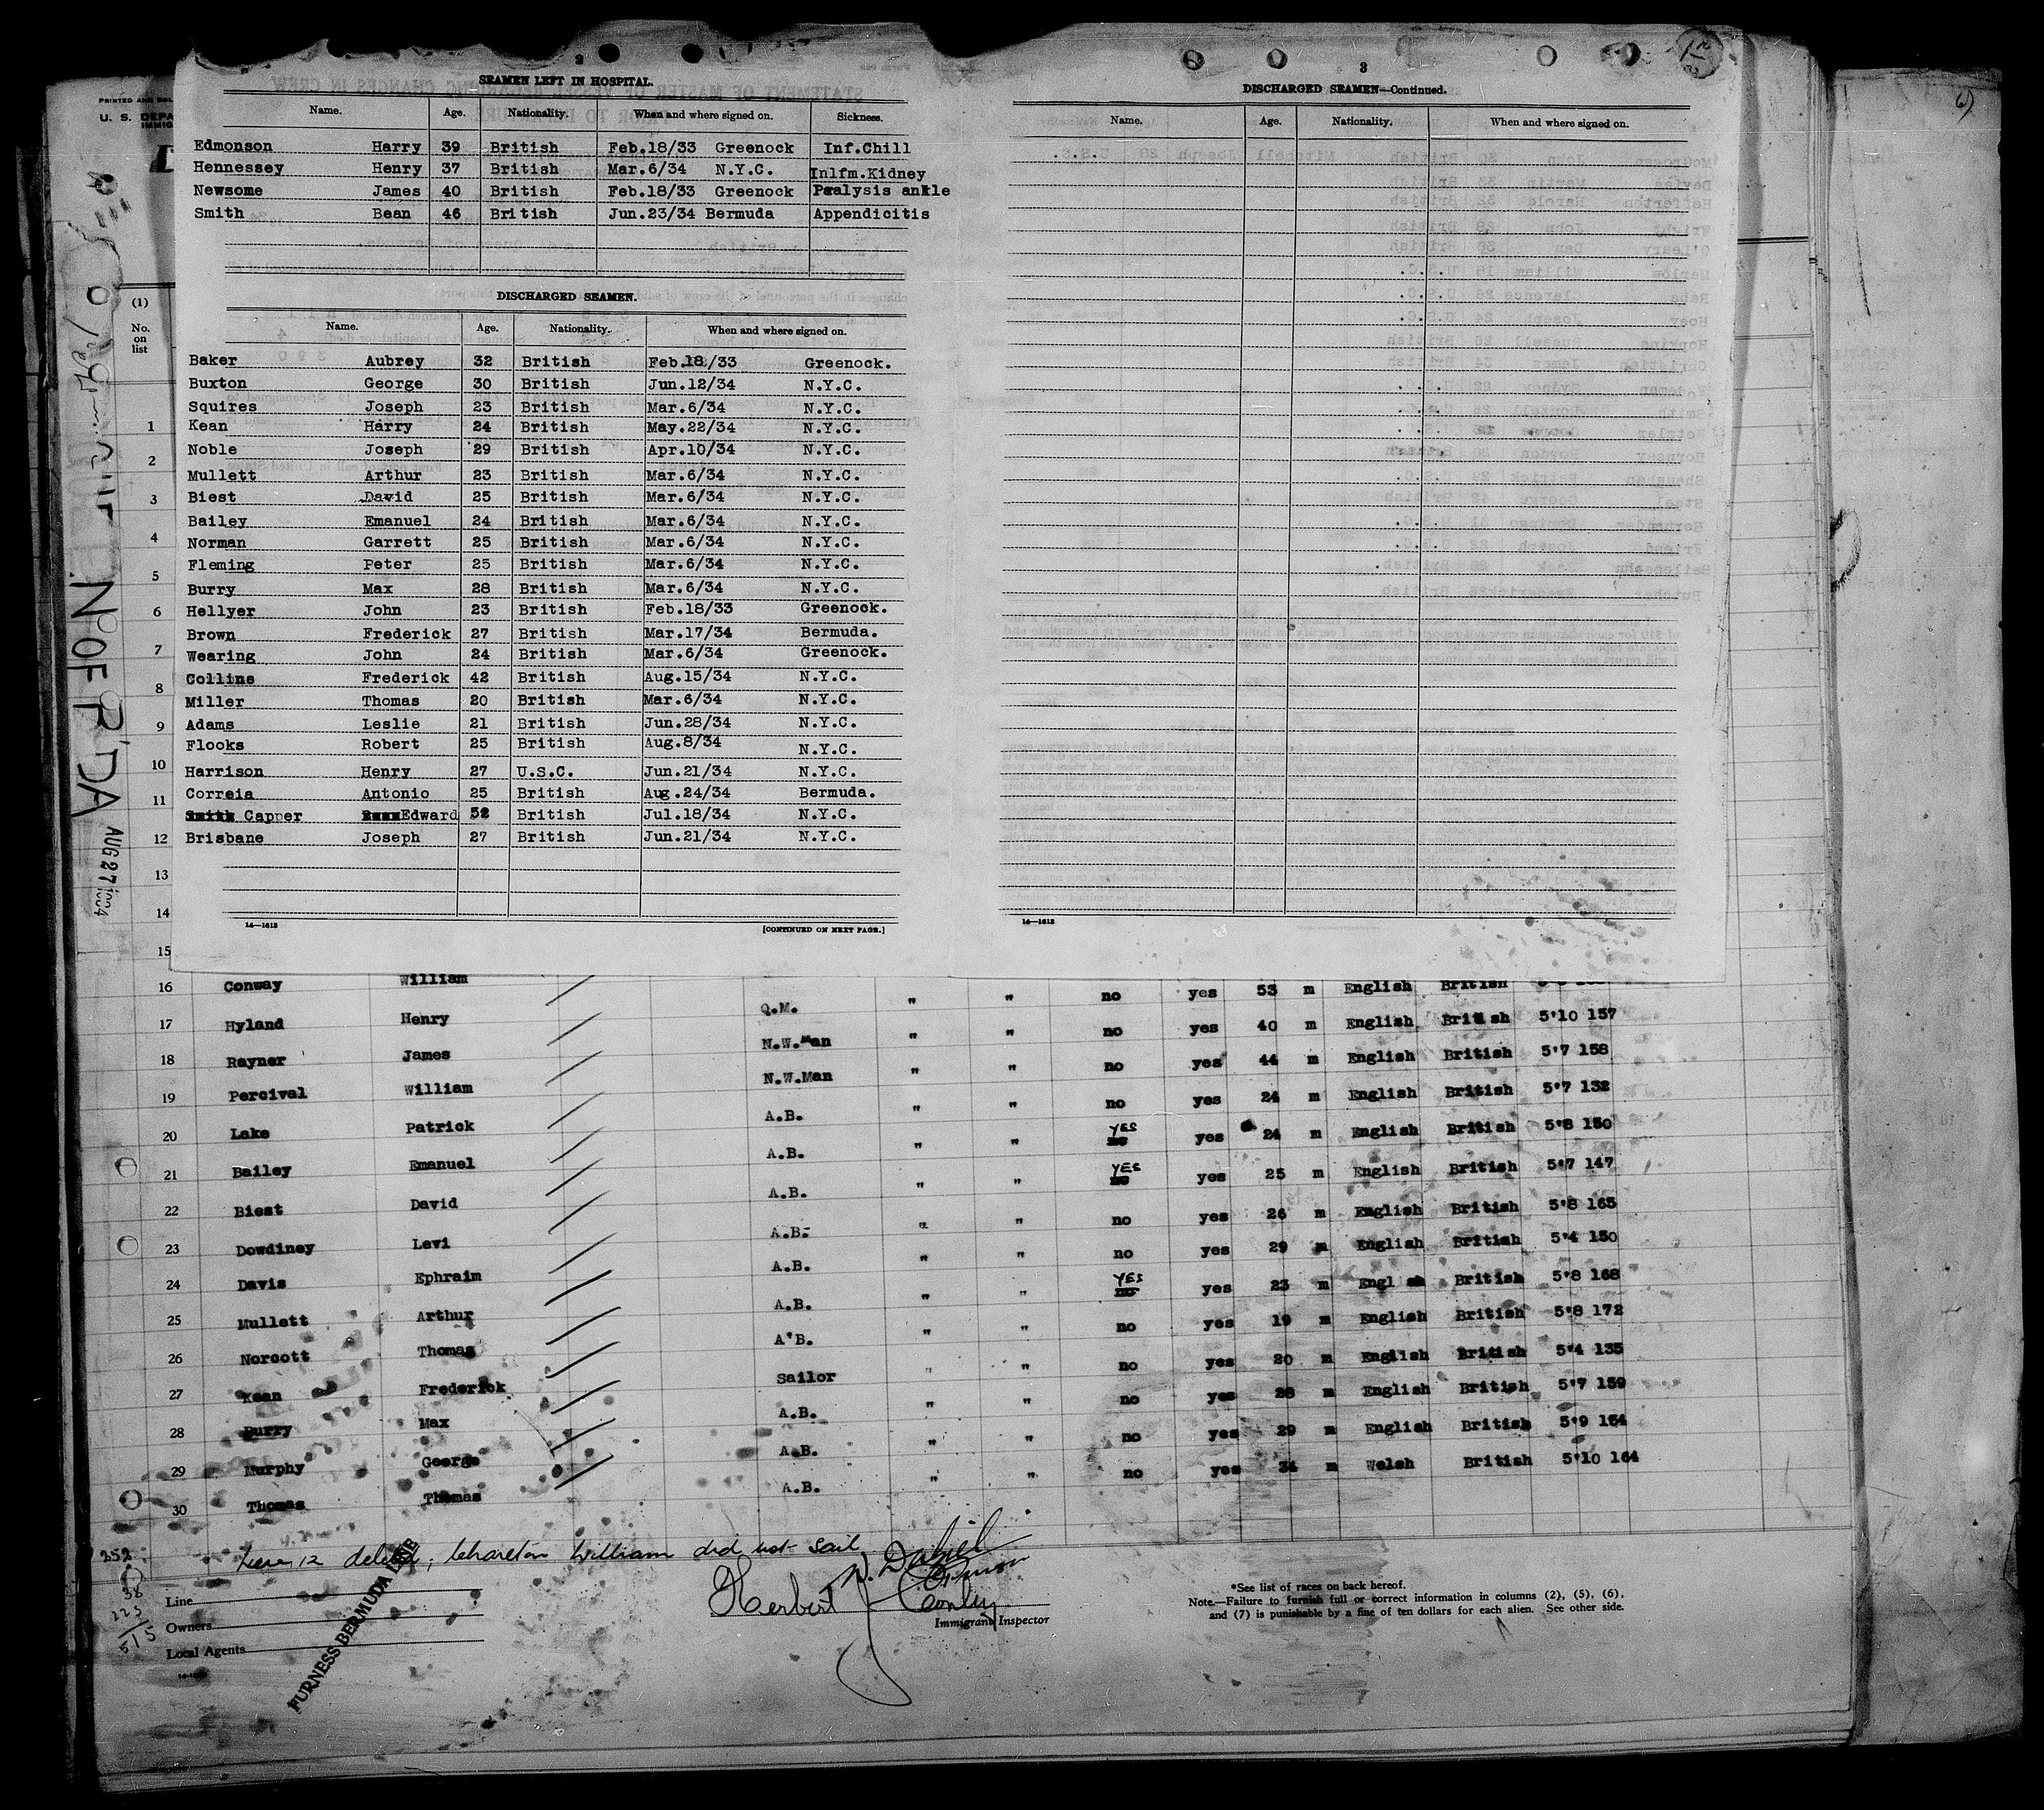 PRINTED AND
U. S. DEPA
IMMIG
2
SEAMEN LEFT IN HOSPITAL.
Name. Age. Nationality. When and where signed on. Sickness.
Edmonson Harry 39 British Feb.18/33 Greenock Inf.Chill
Hennessey Henry 37 British Mar.6/34 N.Y.C. Inlfm.Kidney
Newsome James 40 British Feb.18/33 Greenock Paalysis ankle
Smith Bean 46 British Jun.23/34 Bermuda Appendicitis
DISCHARGED SEAMEN.
Name. Age. Nationality. When and where signed on.
Baker Aubrey 32 British Feb.18/33 Greenock.
Buxton George 30 British Jun.12/34 N.Y.C.
Squires Joseph 23 British Mar.6/34 N.Y.C.
Kean Harry 24 British May.22/34 N.Y.C.
Noble Joseph 29 British Apr.10/34 N.Y.C.
Mullett Arthur 23 British Mar.6/34 N.Y.C.
Biest David 25 British Mar.6/34 N.Y.C.
Bailey Emanuel 24 British Mar.6/34 N.Y.C.
Norman Garrett 25 British Mar.6/34 N.Y.C.
Fleming Peter 25 British Mar.6/34 N.Y.C.
Burry Max 28 British Mar.6/34 N.Y.C.
Hellyer John 23 British Feb.18/33 Greenock.
Brown Frederick 27 British Mar.17/34 Bermuda.
Wearing John 24 British Mar.6/34 Greenock.
Collins Frederick 42 British Aug.15/34 N.Y.C.
Miller Thomas 20 British Mar.6/34 N.Y.C.
Adams Leslie 21 British Jun.28/34 N.Y.C.
Flooks Robert 25 British Aug.8/34 N.Y.C.
Harrison Henry 27 U.S.C. Jun.21/34 N.Y.C.
Correia Antonio 25 British Aug.24/34 Bermuda.
Smith Capper Edward 52 British Jul.18/34 N.Y.C.
Brisbane Joseph 27 British Jun.21/34 N.Y.C.
14—1613 [CONTINUED ON NEXT PAGE.]
3
DISCHARGED SEAMEN—Continued.
Name. Age. Nationality. When and where signed on.
14—1613
(1)
No.
on
list
1
2
3
4
5
6
7
8
9
10
11
12
13
14
15
N OF B'DA
AUG 27 1934
16 Conway William Q.M. " " no yes 53 m English British
17 Hyland Henry N.W.Man " " no yes 40 m English British 5'10 157
18 Rayner James N.W.Man " " no yes 44 m English British 5'7 158
19 Percival William A.B. " " no yes 24 m English British 5'7 132
20 Lake Patrick A.B. " " YES no yes 24 m English British 5'8 150
21 Bailey Emanuel A.B. " " YES no yes 25 m English British 5'7 147
22 Biest David A.B. " " no yes 26 m English British 5'8 165
23 Dowdiney Levi A.B. " " no yes 29 m English British 5'4 150
24 Davis Ephraim A.B. " " YES no yes 23 m English British 5'8 168
25 Mullett Arthur A'B. " " no yes 19 m English British 5'8 172
26 Norcott Thomas Sailor " " no yes 20 m English British 5'4 135
27 Kean Frederick A.B. " " no yes 28 m English British 5'7 159
28 Burry Max A.B. " " no yes 29 m English British 5'9 154
29 Murphy George A.B. " " no yes 34 m Welsh British 5'10 164
30 Thomas Thomas
252
38
225
515
Line 12 deleted, Chareton William did not sail
Line
Owners
Local Agents
FURNESS BERMUDA LINE
Herbert J. Conley
Immigrant Inspector
*See list of races on back hereof.
Note.—Failure to furnish full or correct information in columns (2), (5), (6),
and (7) is punishable by a fine of ten dollars for each alien. See other side.